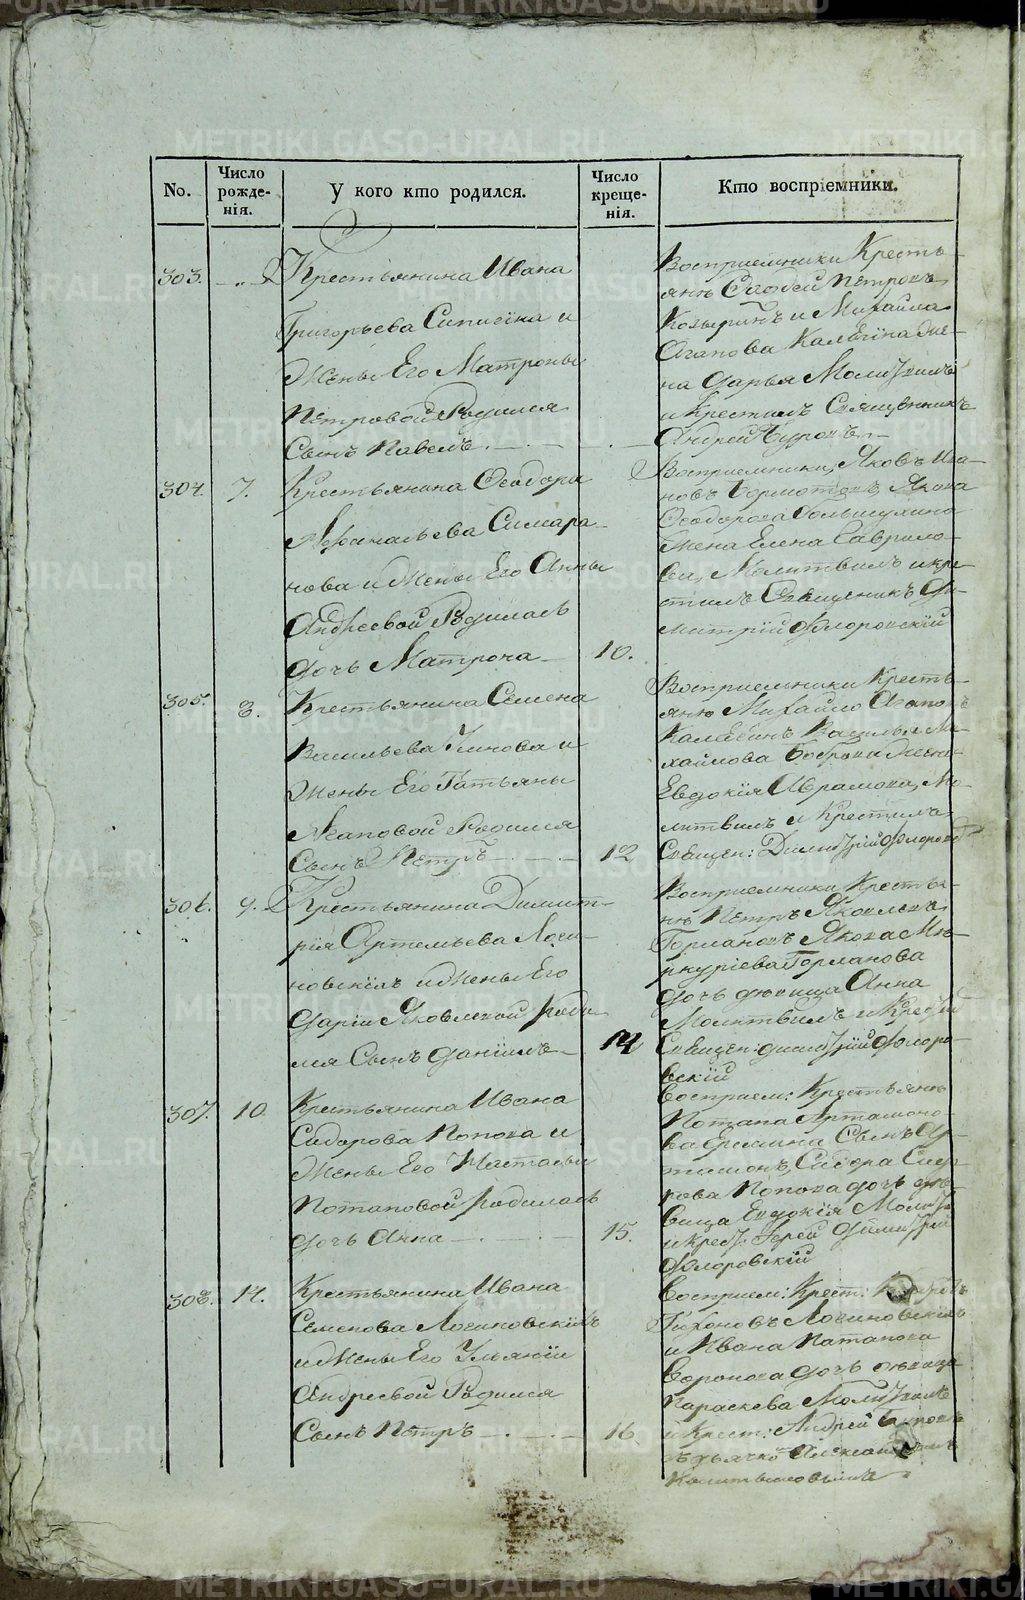 METRIKI.GASO-URAL.RU
No.
Число рожде-нія.
У кого кто родился.
Число креще-нія.
Кто воспріемники.
303.
Крестьянина Ивана
Григорьева и
Жены Его Матроны
Петровой Родился
Сынъ Павелъ
Восприемники Кресть-
янъ Петровъ
Козыринъ и Михайла
Агапова Калегина же-
на Дарья
и Крестилъ Священникъ
Андрей
304.
7.
Крестьянина Ѳеодора
Афанасьева
нова и Жены Его Анны
Андреевой Родилась
дочь Матрона
10.
Восприемники, Яковъ Ива-
новъ Якова
Ѳеодорова
Жена Елена Гаврило-
ва, Молитвилъ и кре-
стилъ Священикъ Ди-
митрій Флоровскій
305.
8.
Крестьянина Семена
Васильева и
Жены Его Татьяны
Агаповой Родился
Сынъ Петръ
12
Восприемники Кресть-
янъ Михайло Агаповъ
Калегинъ Василья Ми-
хайлова Боброва Жена
Евдокія Аврамова, Мо-
литвилъ и Крестилъ
Священ: Димитрій Флоровс
306.
9.
Крестьянина Димит-
рія Артемьева Логи-
новскихъ и Жены Его
Даріи Яковлевой роди
лся Сынъ Даніилъ
14
Восприемники Кресть-
нъ Петръ Яковлевъ
Гормановъ Якова Ме-
ркуріева Горманова
дочь девица Анна
Молитвилъ и Крестил
Священ: Димитрій Флоро-
вскій
307.
10.
Крестьянина Ивана
Сидорова Попова и
Жены Его Натальи
Потаповой родилась
дочь Анна
15.
Восприем: Крестьянъ
Потапа Артамоно-
ва Сынъ
Сидора
Попова дочь де-
вица Евдокія
и крес: Іерей Димитрій
Флоровскій
308.
14.
Крестьянина Ивана
Семенова Логиновскихъ
и Жены Его Ульяніи
Андреевой Родился
Сынъ Петръ
16.
Восприем: Крест:
Тихоновъ Логиновскихъ
и Ивана Патапова
Воронова дочь девица
Параскева
и Крест: Андрей
дьячко